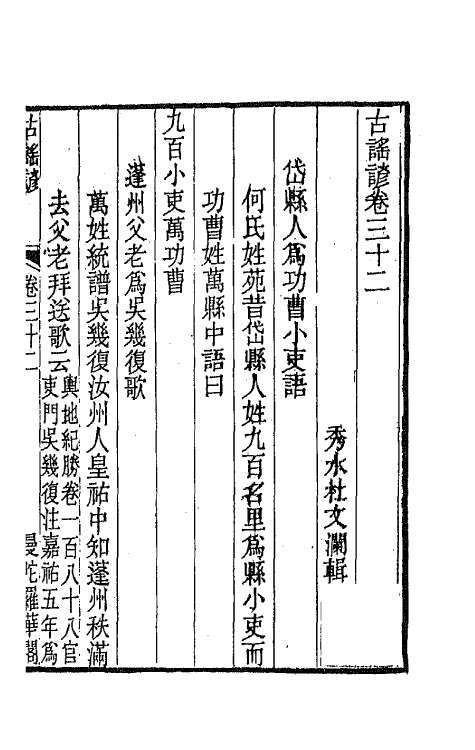 古謠諺卷三十二
秀水杜文瀾輯
岱縣人爲功曹小吏語
何氏姓苑昔岱縣人姓九百名里爲縣小吏而
功曹姓萬縣中語曰
九百小吏萬功曹
蓬州父老爲吳幾復歌
萬姓統譜吳幾復汝州人皇祐中知蓬州秩滿
去父老拜送歌云輿地紀勝卷一百八十八官
東門吳幾復注嘉祐五年爲
古謠諺 卷三十二 曼陀羅華閣